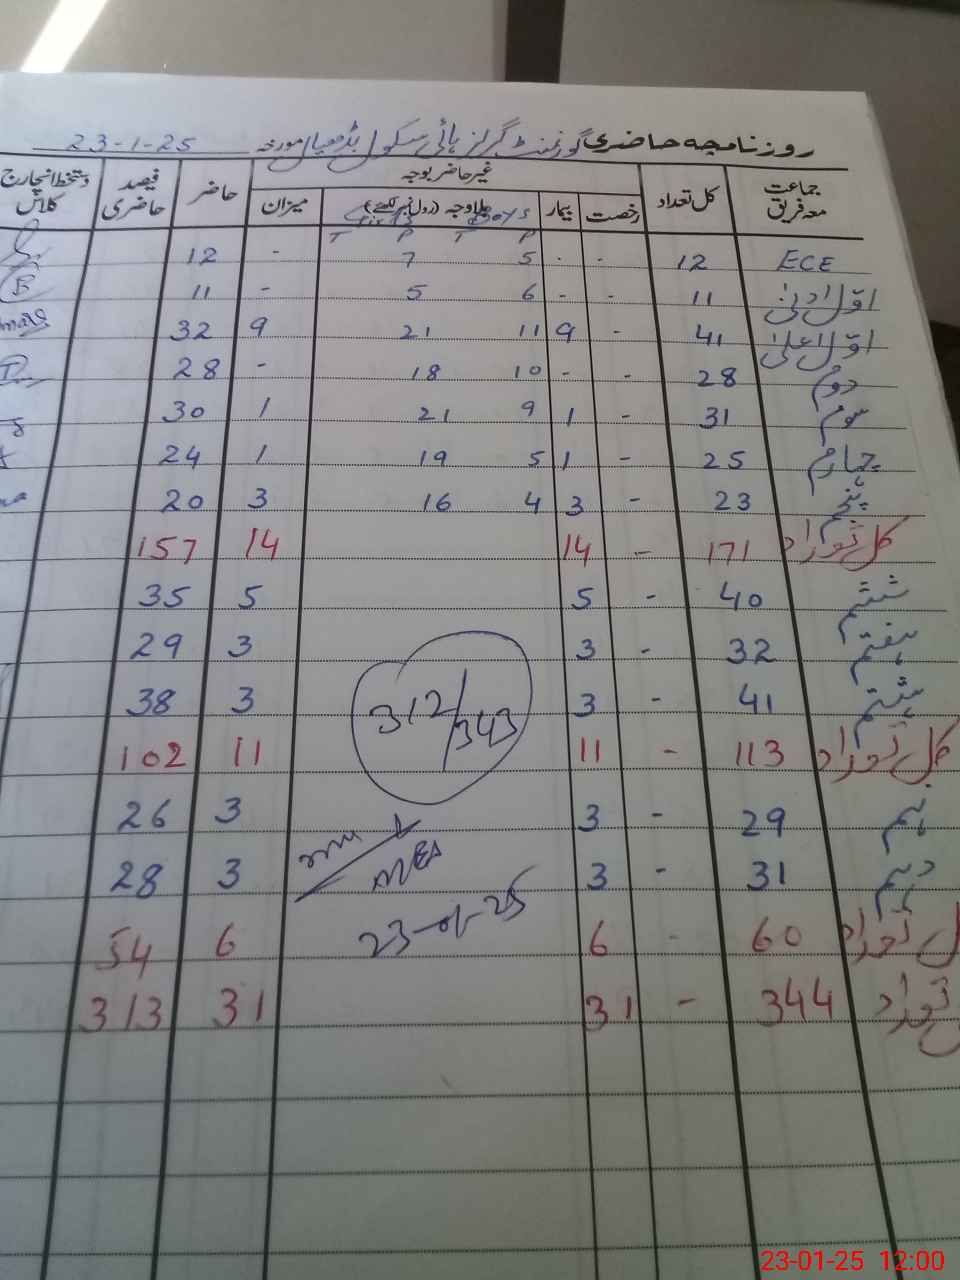 روزنامچہ حاضری گورنمنٹ گرلز ہائی سکول بڈھیال مورخہ 23-1-25
جماعت معہ فریق کل تعداد غیر حاضر بوجہ حاضر فیصد حاضری دستخط انچارج کلاس
رخصت بیمار بلاوجہ (رول نمبر لکھئے) میزان
Girls Boys
T P T P
ECE 12 - - 5 7 - 12
اوّل ادنیٰ 11 - - 6 5 - 11
اوّل اعلیٰ 41 - 9 11 21 9 32
دوم 28 - - 10 18 - 28
سوم 31 - 1 9 21 1 30
چہارم 25 - 1 5 19 1 24
پنجم 23 - 3 4 16 3 20
کل تعداد 171 - 14 14 157
ششم 40 - 5 5 35
ہفتم 32 - 3 3 29
ہشتم 41 - 3 3 38
312/343
کل تعداد 113 - 11 11 102
نہم 29 - 3 3 26
دہم 31 - 3 3 28
MEA
23-01-25
کل تعداد 60 - 6 6 54
کل تعداد 344 - 31 31 313
23-01-25 12:00